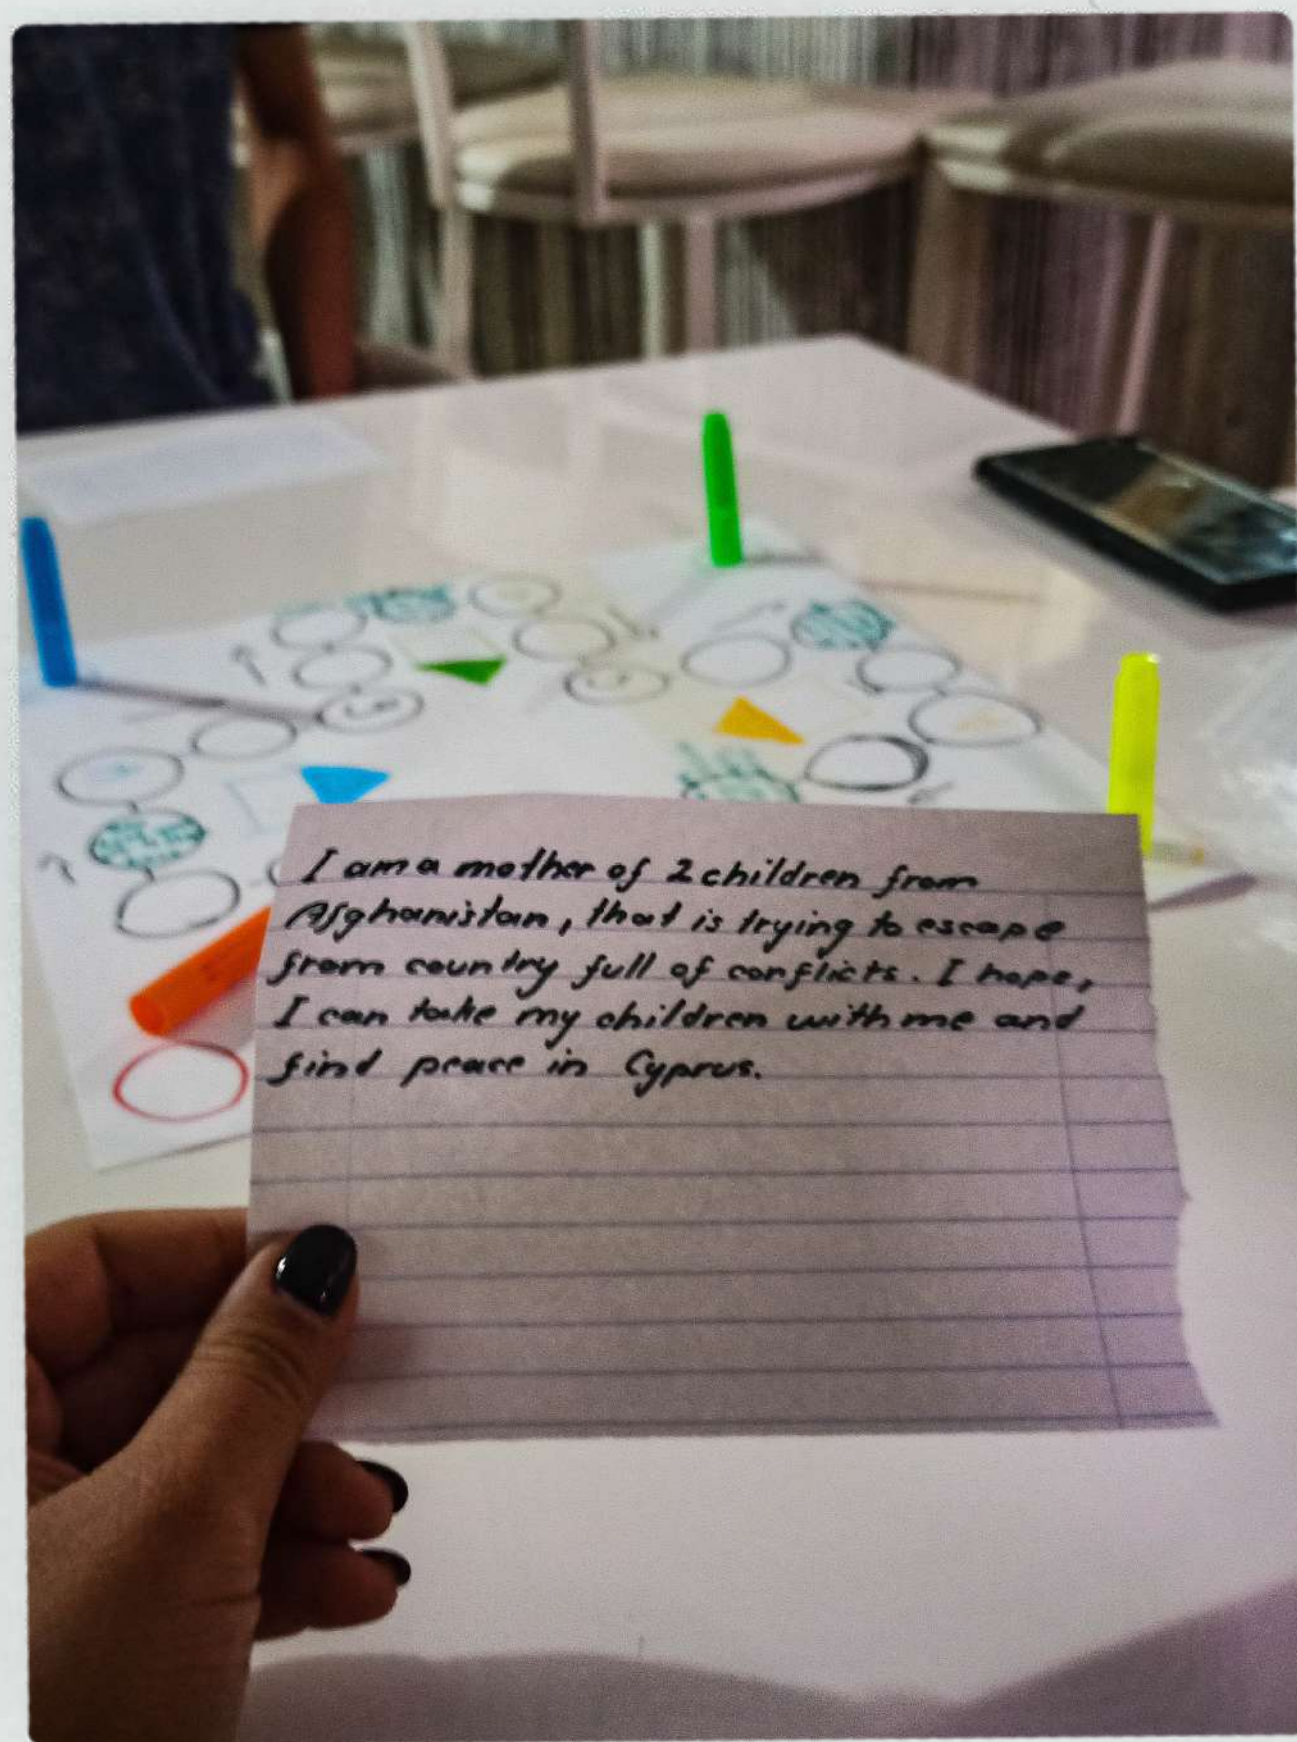 I am a mother of 2 children from
Afghanistan, that is trying to escape
from country full of conflicts. I hope,
I can take my children with me and
find peace in Cyprus.